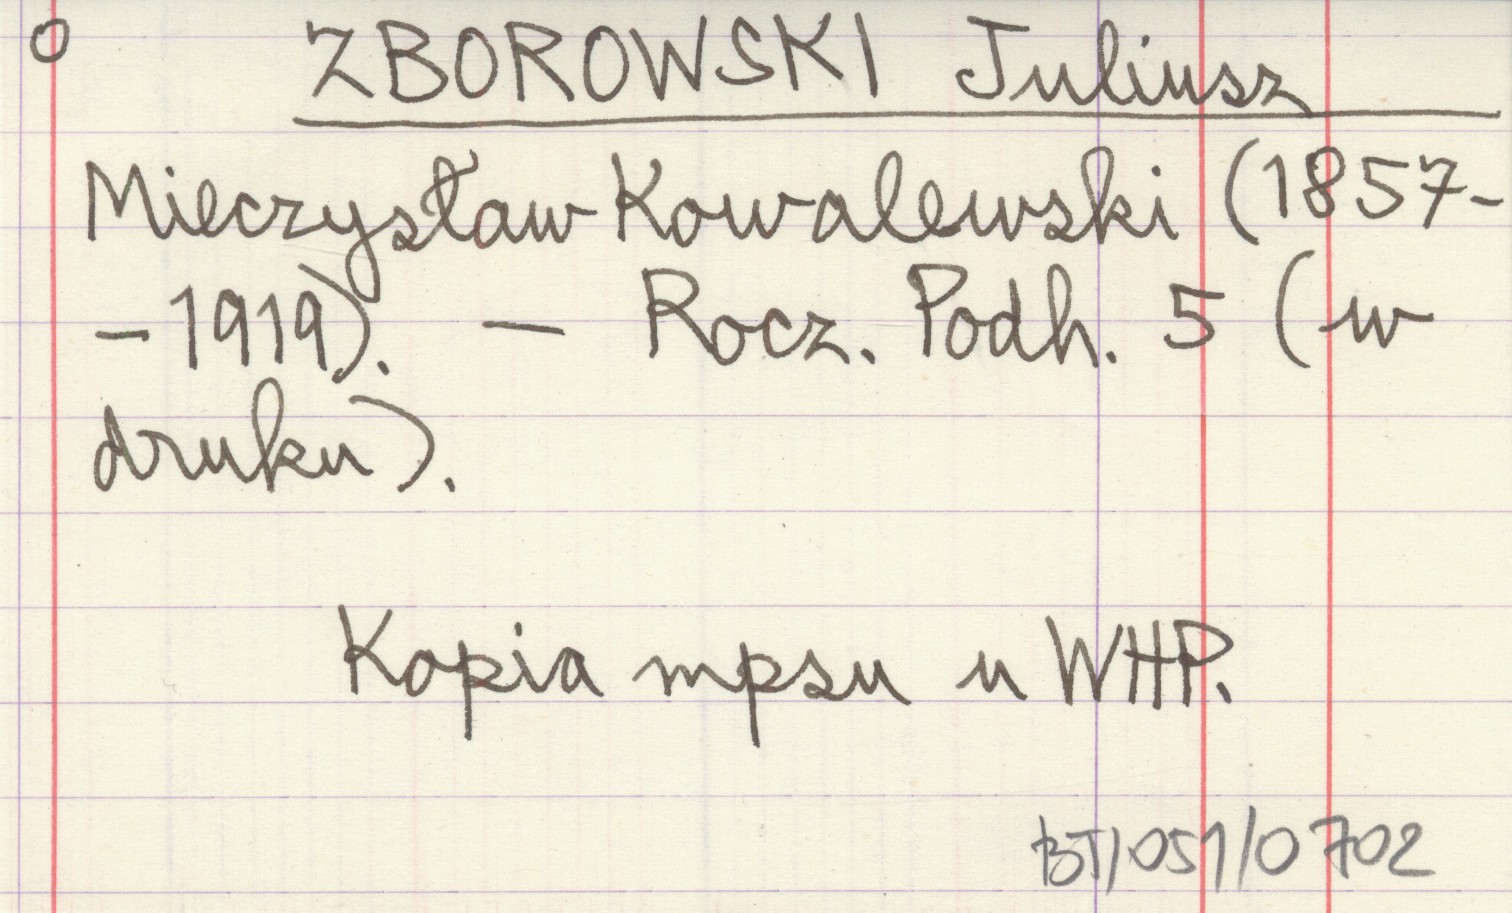 o ZBOROWSKI Juliusz
Mieczysław Kowalewski (1857-
- 1919). — Rocz. Podh. 5 (w
druku).
Kopia mpsu u WHP.
BT/051/0702